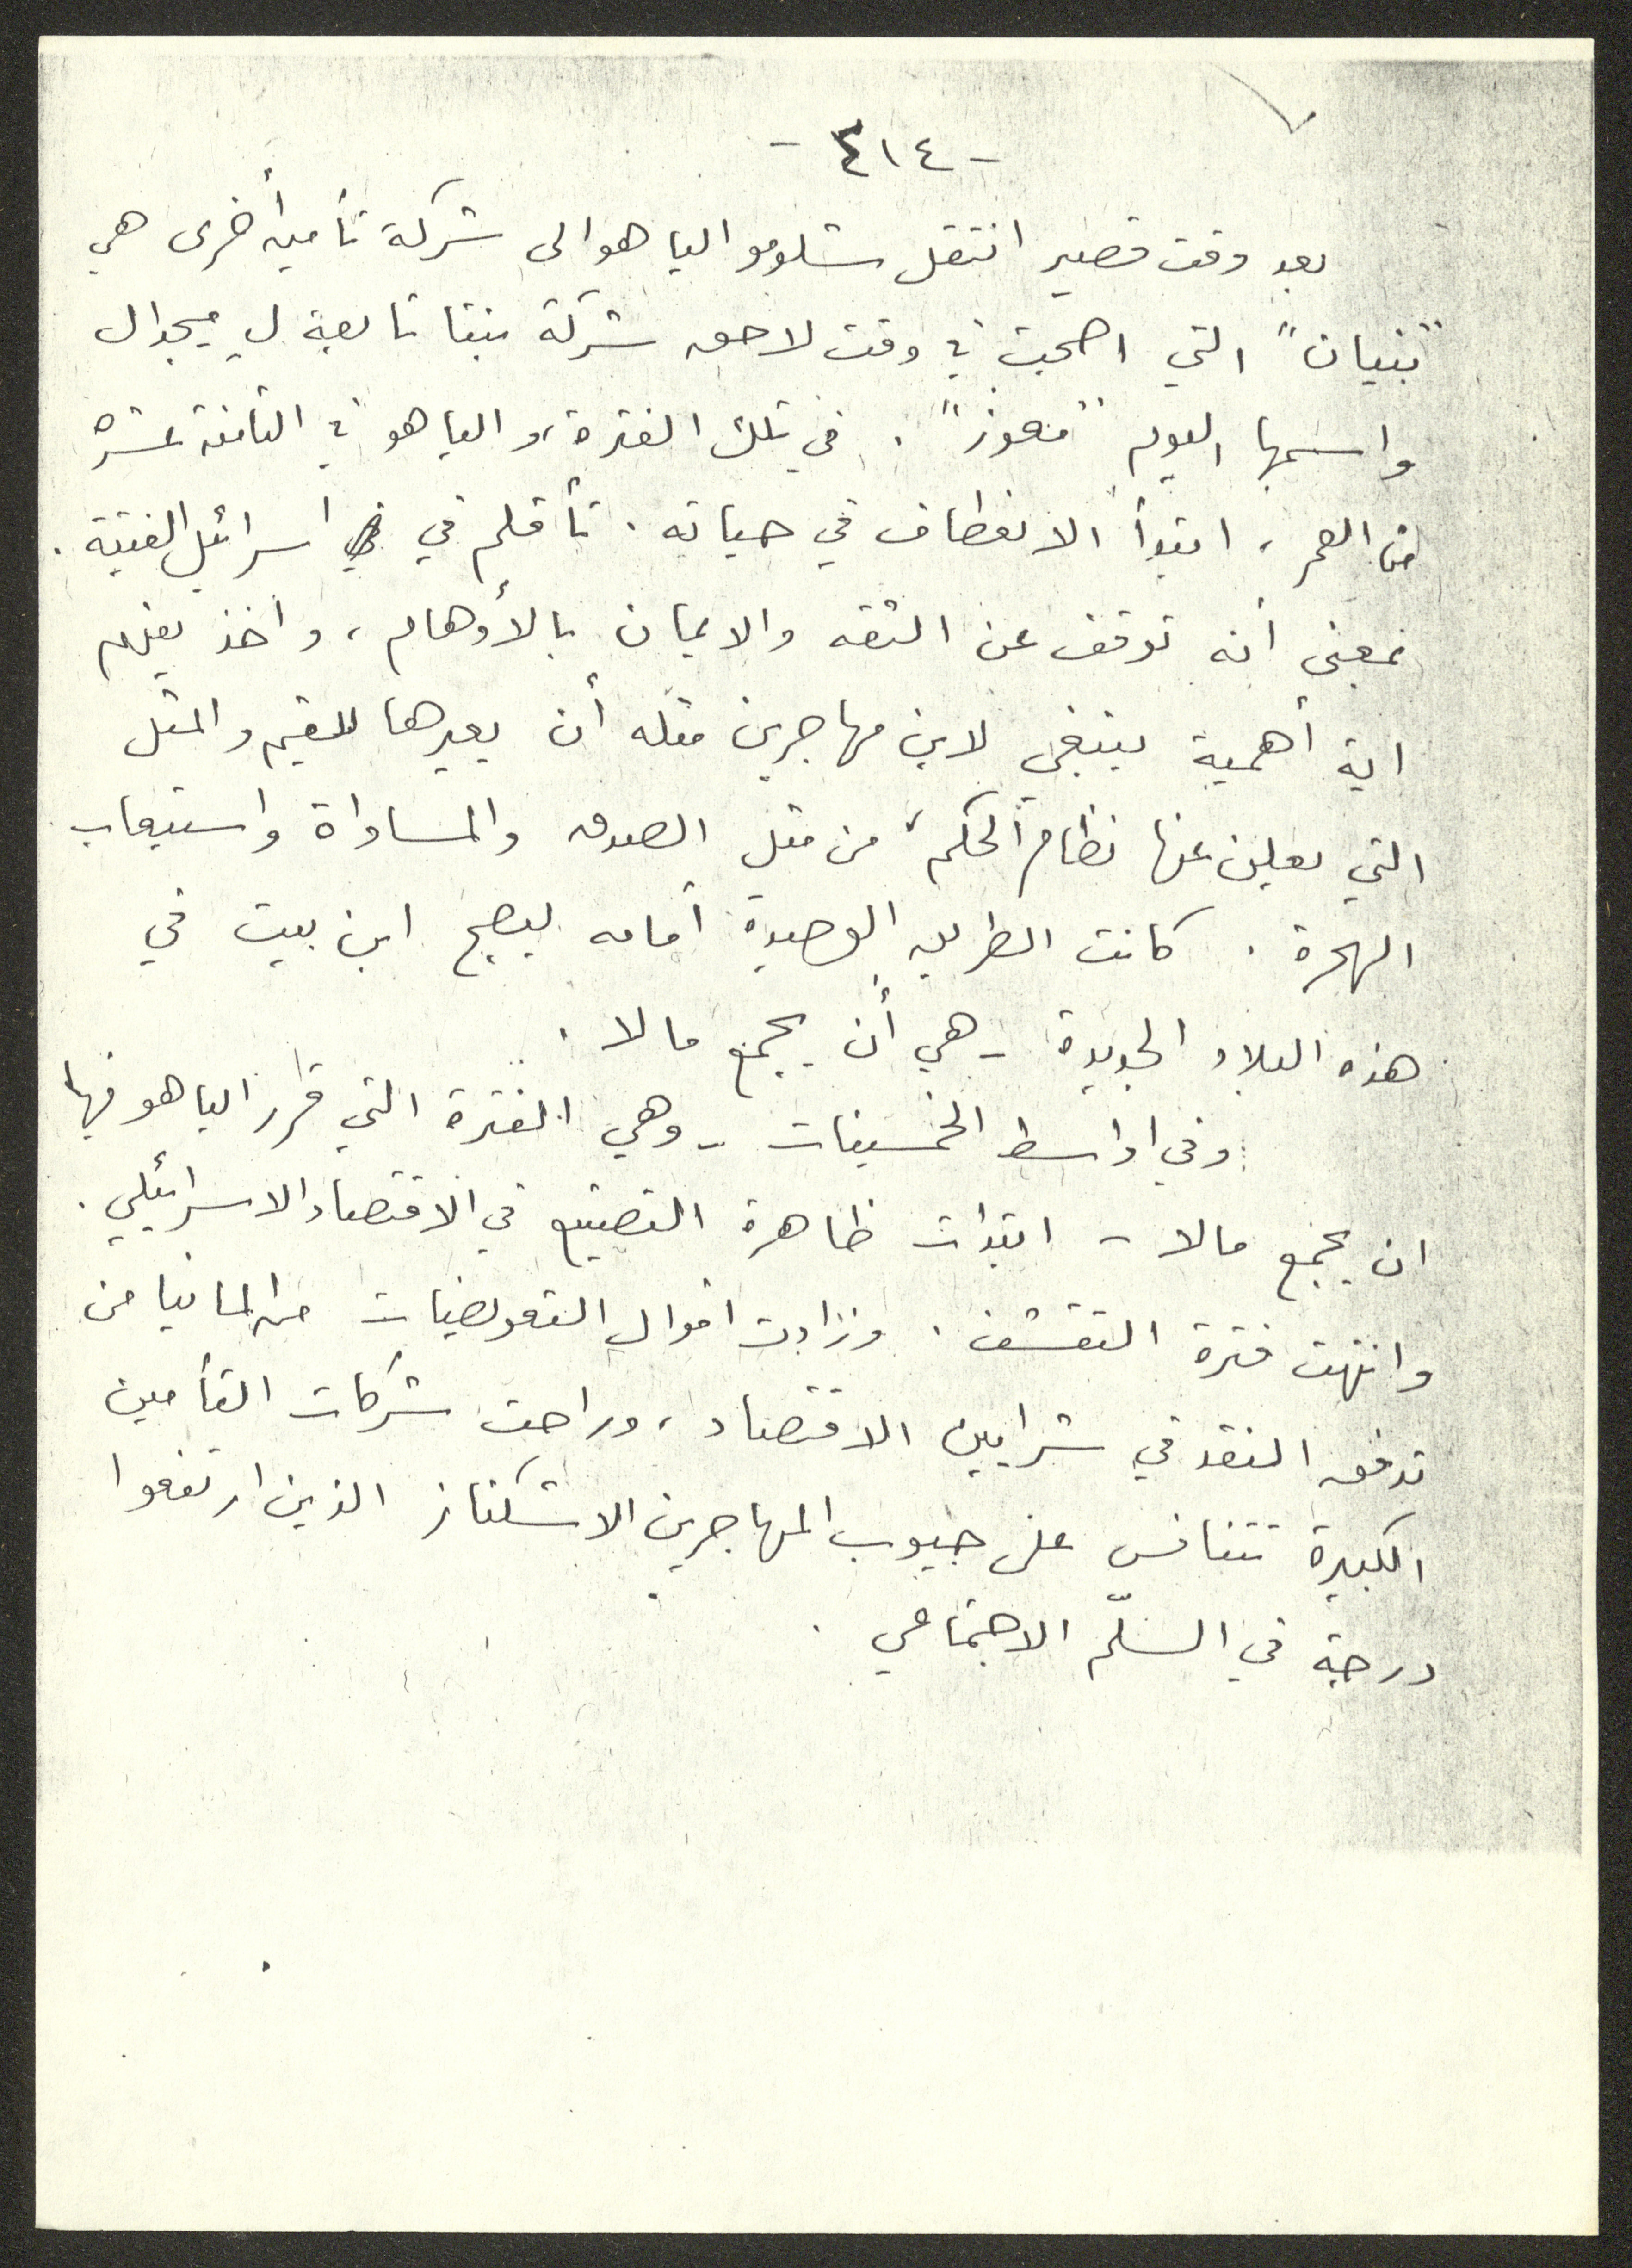 - ٤١٤ -
بعد وقت قصير انتقل شلومو الياهو الى شركة تأمين أخرى هي
"بنيان" التي اصبحت في وقت لاحق شركة بنتا تابعة ل ميجدال
واسمها اليوم "معوز". في تلك الفترة، والياهو في الثامنة عشرة
من العمر، ابتدأ الانعطاف في حياته. تأقلم في اسرائيل الفتية.
بمعنى أنه توقف عن الثقه والايمان بالأوهام، واخذ يفهم
اية أهمية ينبغي لابن مهاجرين مثله أن يعيرها للقيم والمثل
التي يعلن عنها نظام الحكم، من مثل الصدق والمساواة واستيعاب
الهجرة. كانت الطريق الوحيدة أمامه ليصبح ابن بيت في
هذه البلاد الجديدة - هي أن يجمع مالا.
وفي اواسط الخمسينات - وهي الفترة التي قرر الياهو فيها
ان يجمع مالا - ابتدات ظاهرة التصنيع في الاقتصاد الاسرائيلي.
وانتهت فترة التقشف. وزادت اموال التعويضات من المانيا من
تدفق النقد في شرايين الاقتصاد، وراحت شركات التأمين
الكبيرة تتنافس على جيوب المهاجرين الاشكناز الذين ارتفعوا
درجة في السلّم الاجتماعي.